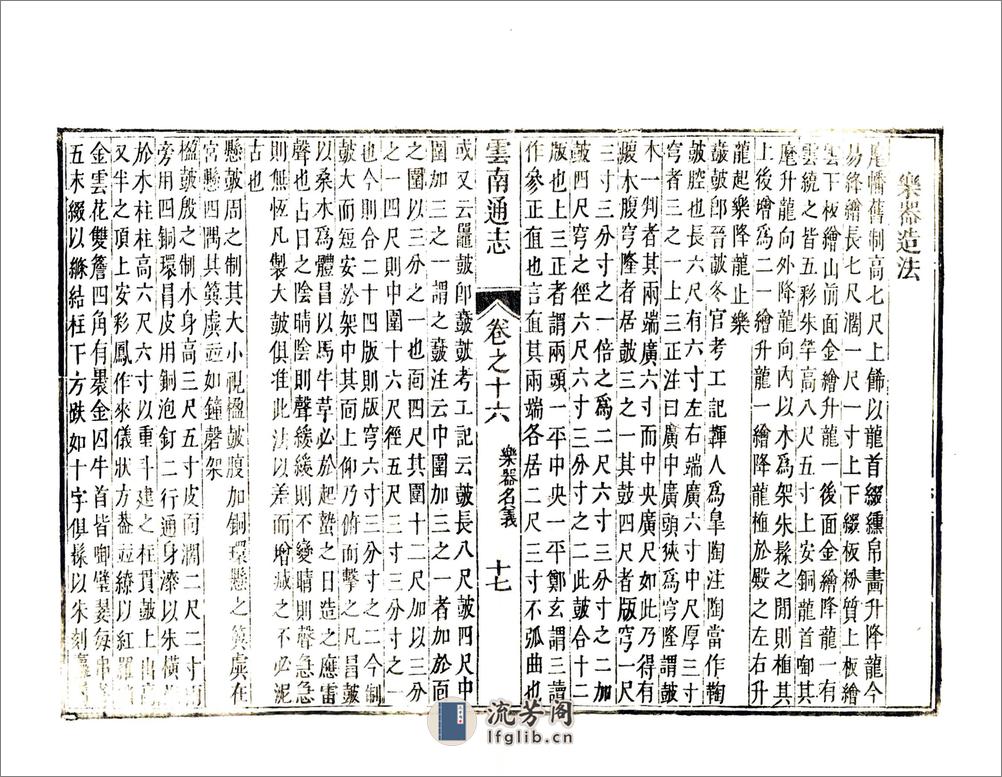 樂器造法
麾旛舊制高七尺上飾以龍首綴纁帛畫升降龍今
易絳繒長七尺濶一尺一寸上下綴板粉質上板繪
雲下板繪山前面金繪升龍一後面金繪降龍一有
雲繞之皆五彩朱竿高八尺五寸上安銅龍首啣其
麾升龍向外降龍向內以木為架朱髹之閒則植其
上後增為二一繪升龍一繪降龍植於殿之左右升
龍起樂降龍止樂
鼖鼔卽晉鼔冬官考工記韗人為臯陶注陶當作鞠
鼔腔也長六尺有六寸左右端廣六寸中尺厚三寸
穹者三之一上三正注曰廣中廣頭狹為穹隆謂鼔
木一判者其兩端廣六寸而中央廣尺如此乃得有
腹木腹穹隆者居鼔三之一其鼓四尺者版穹一尺
三寸三分寸之一倍之為二尺六寸三分寸之二加
鼔四尺穹之徑六尺六寸三分寸之二此鼔合十二
版也上三正者謂兩頭一平中央一平鄭玄謂三讀
作參正直也言直其兩端各居二尺三寸不弧曲也
雲南通志
卷之十六
樂器名義
十七
或又云鼉鼔卽鼖鼔考工記云鼔長八尺鼔四尺中
圍加三之一謂之鼖注云中圍加三之一者加於面
之圍以三分之一也面四尺其圍十二尺加以三分
之一四尺則中圍十六尺徑五尺三寸三分寸之一
也今則合二十四版則版穹六寸三分寸之二今制
鼔大而短安於架中其面上仰乃俯而擊之凡昌鼔
以桑木為體昌以馬牛革必於起蟄之日造之應雷
聲也占日之陰晴陰則聲緩緩則不變晴則聲急急
則無恆凡製大鼔俱准此法以差而增減之不必泥
古也
懸鼔周之制其大小視楹鼔腹加銅環懸之簨虡在
宮懸四隅其簨虡竝如鐘磬架
楹鼔殷之制木身高三尺五寸皮面濶二尺二寸兩
旁用四銅環昌皮用銅泡釘二行通身漆以朱橫
於木柱柱高六尺六寸以重斗建之柱貫鼔上出高
又半之頂上安彩鳳作來儀狀方葢竝繚以紅羅
金雲花雙簷四角有纍金囚牛首皆啣璧翣每串
五末綴以絛結柱下方趺如十字俱髹以朱刻
流芳阁
lfglib.cn